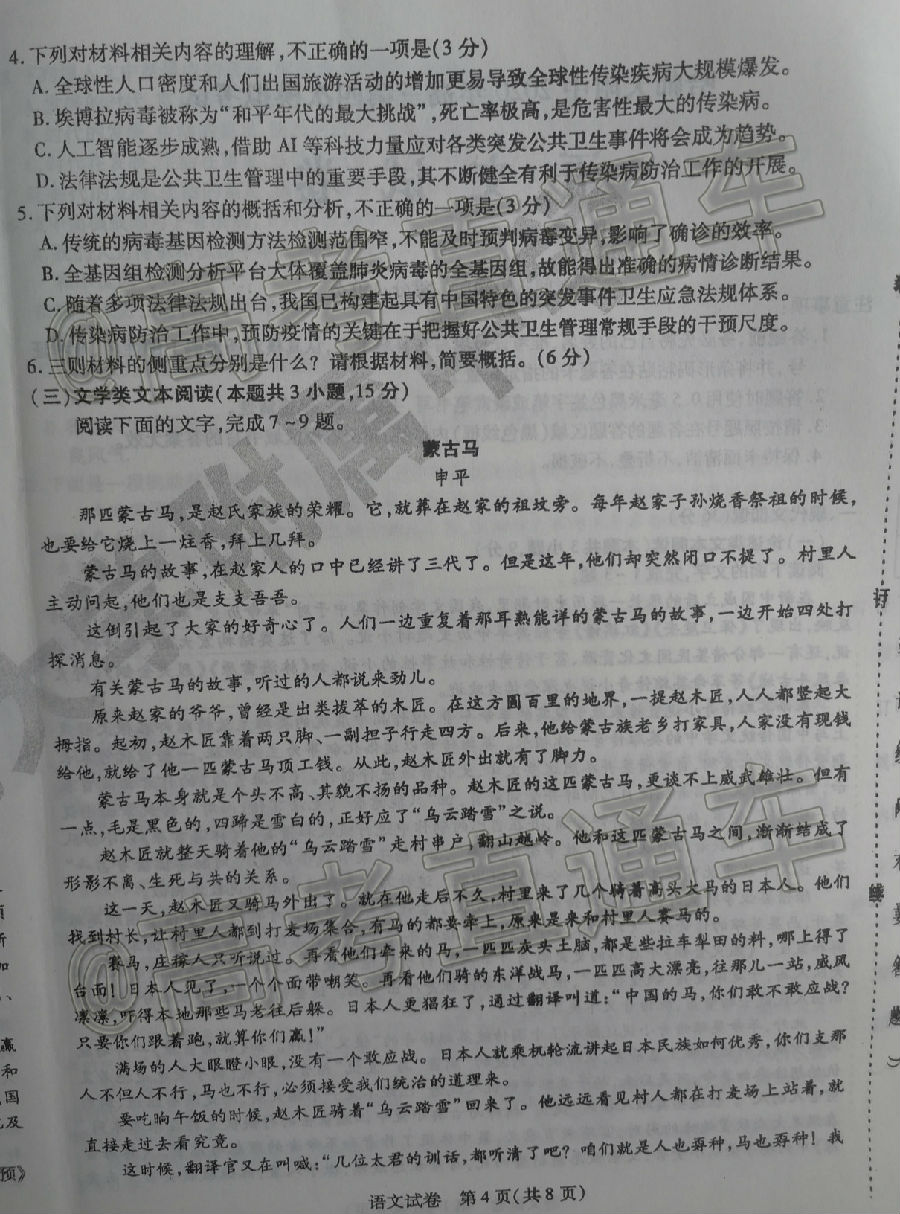 4.下列对材料相关内容的理解,不正确的一项是(3分)
A.全球性人口密度和人们出国旅游活动的增加更易导致全球性传染疾病大规模爆发。
B.埃博拉病毒被称为“和平年代的最大挑战”,死亡率极高,是危害性最大的传染病。
C.人工智能逐步成熟,借助AI等科技力量应对各类突发公共卫生事件将会成为趋势。
D.法律法规是公共卫生管理中的重要手段,其不断健全有利于传染病防治工作的开展。
5.下列对材料相关内容的概括和分析,不正确的一项是(3分)
A.传统的病毒基因检测方法检测范围窄,不能及时预判病毒变异,影响了确诊的效率。
B.全基因组检测分析平台大体覆盖肺炎病毒的全基因组,故能得出准确的病情诊断结果。
C.随着多项法律法规出台,我国已构建起具有中国特色的突发事件卫生应急法规体系。
D.传染病防治工作中,预防疫情的关键在于把握好公共卫生管理常规手段的干预尺度。
6.三则材料的侧重点分别是什么?请根据材料,简要概括。(6分)
(三)文学类文本阅读(本题共3小题,15分)
阅读下面的文字,完成7~9题。
蒙古马
申平
那匹蒙古马,是赵氏家族的荣耀。它,就葬在赵家的祖坟旁。每年赵家子孙烧香祭祖的时候,
也要给它烧上一炷香,拜上几拜。
蒙古马的故事,在赵家人的口中已经讲了三代了。但是这年,他们却突然闭口不提了。村里人
主动问起,他们也是支支吾吾。
这倒引起了大家的好奇心了。人们一边重复着那耳熟能详的蒙古马的故事,一边开始四处打
探消息。
有关蒙古马的故事,听过的人都说来劲儿。
原来赵家的爷爷,曾经是出类拔萃的木匠。在这方圆百里的地界,一提赵木匠,人人都竖起大
拇指。起初,赵木匠靠着两只脚、一副担子行走四方。后来,他给蒙古族老乡打家具,人家没有现钱
给他,就给了他一匹蒙古马顶工钱。从此,赵木匠外出就有了脚力。
蒙古马本身就是个头不高、其貌不扬的品种。赵木匠的这匹蒙古马,更谈不上威武雄壮。但有
一点,毛是黑色的,四蹄是雪白的,正好应了“乌云踏雪”之说。
赵木匠就整天骑着他的“乌云踏雪”走村串户,翻山越岭。他和这匹蒙古马之间,渐渐结成了
形影不离、生死与共的关系。
这一天,赵木匠又骑马外出了。就在他走后不久,村里来了几个骑着高头大马的日本人。他们
找到村长,让村里人都到打麦场集合,有马的都要牵上,原来是来和村里人赛马的。
赛马,庄稼人只听说过。再看他们牵来的马,一匹匹灰头土脑,都是些拉车犁田的料,哪上得了
台面!日本人见了,一个个面带嘲笑。再看他们骑的东洋战马,一匹匹高大漂亮,往那儿一站,威风
凛凛,吓得本地那些马老往后躲。日本人更猖狂了,通过翻译叫道:“中国的马,你们敢不敢应战?
只要你们跟着跑,就算你们赢!”
满场的人大眼瞪小眼,没有一个敢应战。日本人就乘机轮流讲起日本民族如何优秀,你们支那
人不但人不行,马也不行,必须接受我们统治的道理来。
要吃晌午饭的时候,赵木匠骑着“乌云踏雪”回来了。他远远看见村人都在打麦场上站着,就
直接走过去看究竟。
这时候,翻译官又在叫喊:“几位太君的训话,都听清了吧?咱们就是人也孬种,马也孬种!我
语文试卷 第4页(共8页)
@高考直通车
@高考直通车
订
线